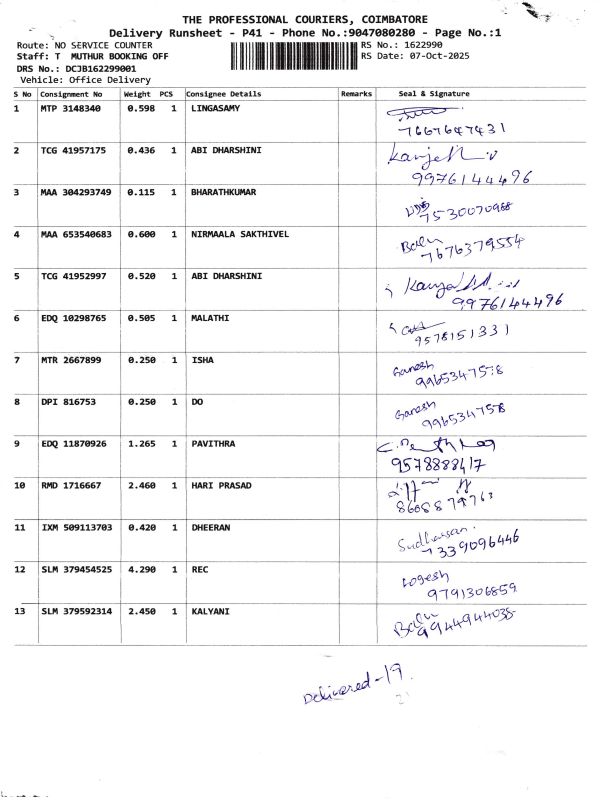 THE PROFESSIONAL COURIERS, COIMBATORE
Delivery Runsheet - P41 - Phone No.:9047080280 - Page No.:1
Route: NO SERVICE COUNTER
RS No.: 1622990
Staff: T MUTHUR BOOKING OFF
RS Date: 07-Oct-2025
DRS No.: DCJB162299001
Vehicle: Office Delivery
S No Consignment No Weight PCS Consignee Details Remarks Seal & Signature
1 MTP 3148340 0.598 1 LINGASAMY
7667647431
2 TCG 41957175 0.436 1 ABI DHARSHINI
9976144496
3 MAA 304293749 0.115 1 BHARATHKUMAR
7530070968
4 MAA 653540683 0.600 1 NIRMAALA SAKTHIVEL
Balu
7676379554
5 TCG 41952997 0.520 1 ABI DHARSHINI
9976144496
6 EDQ 10298765 0.505 1 MALATHI
9578151331
7 MTR 2667899 0.250 1 ISHA
Ganesh
9965347578
8 DPI 816753 0.250 1 DO
Ganesh
9965347578
9 EDQ 11870926 1.265 1 PAVITHRA
9578888417
10 RMD 1716667 2.460 1 HARI PRASAD
8668879763
11 IXM 509113703 0.420 1 DHEERAN
Sudharsan.
7339096446
12 SLM 379454525 4.290 1 REC
Logesh
9791306859
13 SLM 379592314 2.450 1 KALYANI
Balu
9944944038
Delivered -19